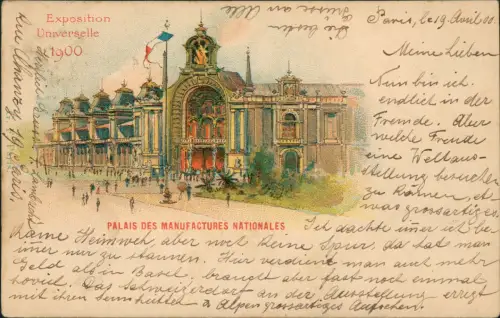 Exposition
Universelle
1900
Paris, le 19 April 00
Meine Lieben
Nun bin ich
endlich in der
Fremde. Aber
welche Freude
eine Weltaus-
stellung besuchen
zu können, et
was grossartiges
PALAIS DES MANUFACTURES NATIONALES
Ich dachte immer ich be
käme Heimweh, aber noch keine Spur, da hat man
immer nur zu staunen. Hier verdiene man auch mehr
Geld als in Basel, braucht aber fast noch einmal
soviel. Das Schweizerdorf an der Ausstellung erregt
mit ihren Sennhütten & Alpen grossartiges Aufsehen.
Die besten
Grüsse an Alle